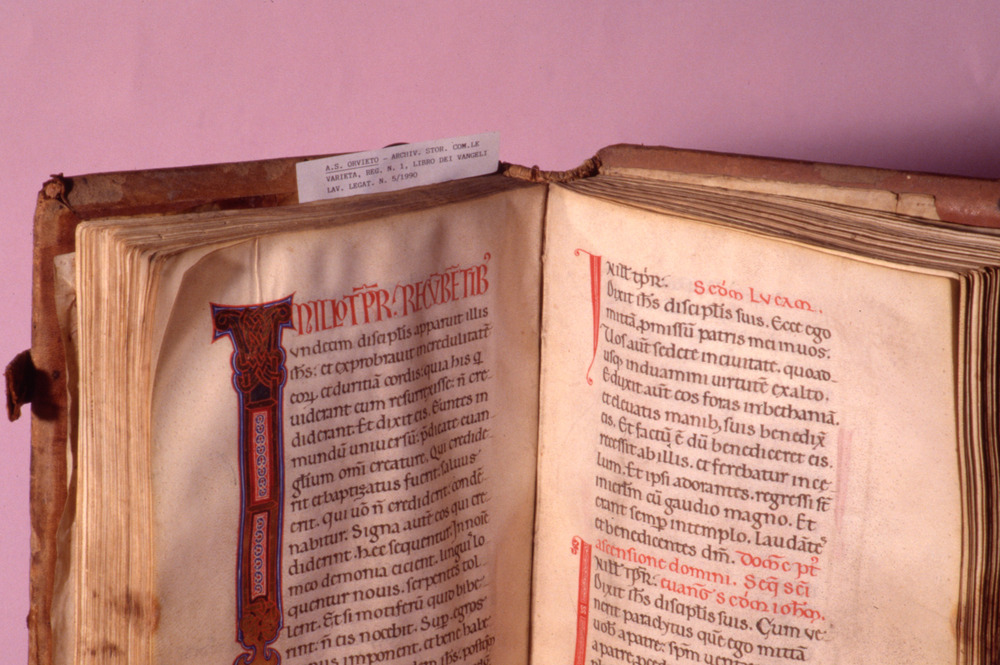 A.S. ORVIETO - ARCHIV. STOR. COM.LE
VARIETA, REG. N. 1, LIBRO DEI VANGELI
LAV. LEGAT. N. 5/1990
IN ILLO TP̄R. RECV̄BĒTIB'
vndecim discipl̄is apparuit illis
ih̄s: et exprobrauit incredulitatē
eoꝝ et duritiā cordis: quia his q̄
uiderant eum resurrexisse: n̄ cre
diderant. Et dixit eis. Euntes in
mundū uniuersū: p̄dicate euan
gl̄ium om̄i creature. Qui credide
rit et baptizatus fuerit. saluus
erit. Qui uō n̄ crediderit: condē
nabitur. Signa aut̄ eos qui cre
diderint. hec sequentur. In noīe
meo demonia eicient. linguis lo
quentur nouis. serpentes tol
lent. Et si mortiferū quid bibe
rint. n̄ eis nocebit. Sup̄ egros
manus imponent. et bene habe
IN ILL̄ TP̄R. Scd̄m Lvcam.
Dixit ih̄s discipl̄is suis. Ecce ego
mittā p̄missū patris mei in uos.
Uos aut̄ sedete in ciuitate. quoad
usq̄ induamini uirtutē ex alto.
Eduxit aut̄ eos foras in bethaniā.
et eleuatis manib; suis benedix̄
eis. Et factū ē dū benediceret eis.
recessit ab illis. et ferebatur in ce
lum. Et ipsi adorantes. regressi s̄t
in ierl̄m cū gaudio magno. Et
erant semp̄ in templo. laudātes
et benedicentes dm̄. Dom̄c p̄t
ascensione domini. Seq̄ sc̄i
IN ILL̄ TP̄R. euanḡ scd̄m ioh̄m.
Dixit ih̄s discipl̄is suis. Cum ue
nerit paraclytus quē ego mittā
uob̄ a patre. sp̄m ueritatis
a patre